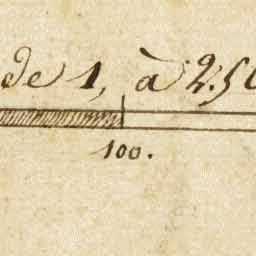 de 1, à 2.50
100.